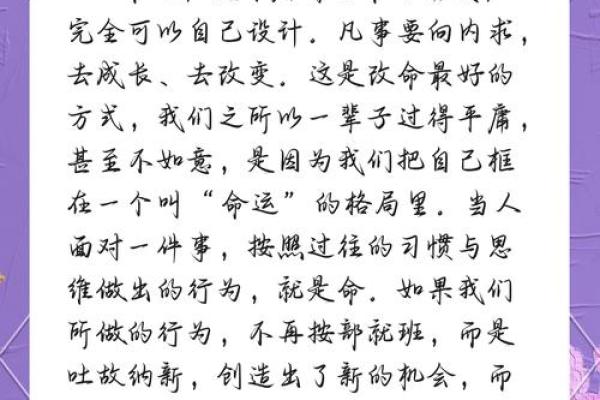 完全可以自己设计．凡事要向内求，
去成长、去改变．这是改命最好的
方式，我们之所以一辈子过得平庸，
甚至不如意，是因为我们把自己框
在一个叫“命运”的格局里．当人
面对一件事，按照过往的习惯与思
维做出的行为，就是命．如果我们
所做的行为，不再按部就班，而是
吐故纳新，创造出了新的机会，而